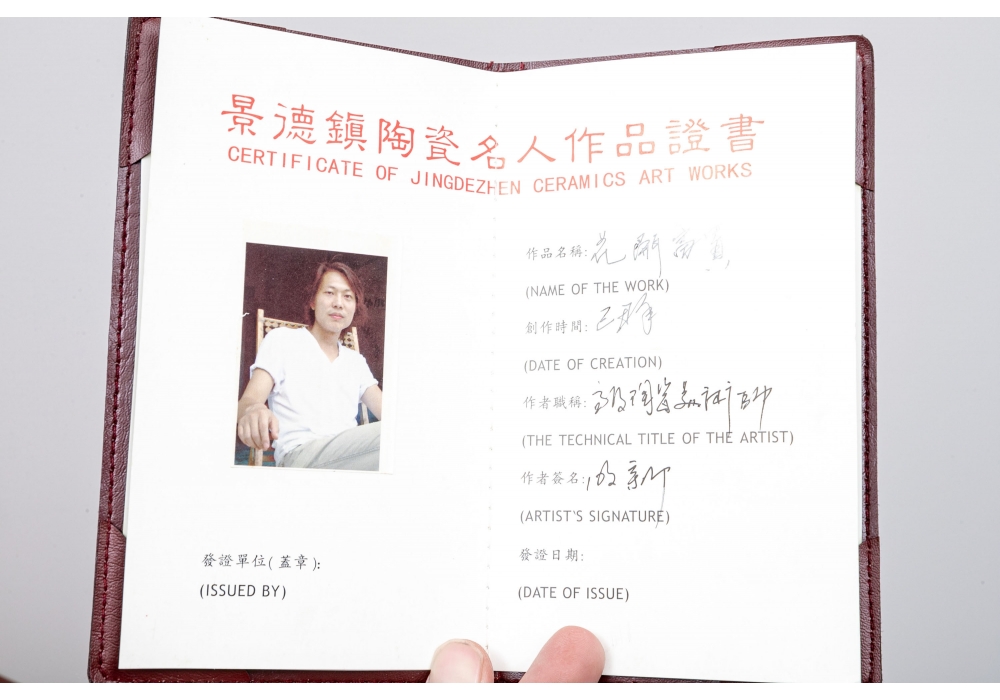 景德鎮陶瓷名人作品證書
CERTIFICATE OF JINGDEZHEN CERAMICS ART WORKS
發證單位(蓋章):
(ISSUED BY)
作品名稱:花開富貴
(NAME OF THE WORK)
創作時間:
(DATE OF CREATION)
作者職稱:高级陶瓷美術師
(THE TECHNICAL TITLE OF THE ARTIST)
作者簽名:
(ARTIST'S SIGNATURE)
發證日期:
(DATE OF ISSUE)